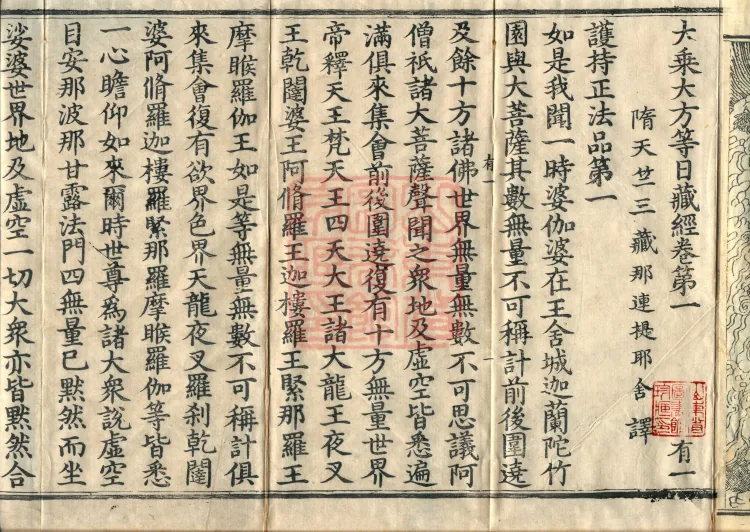 大乘大方等日藏經卷第一 有一
隋天竺三藏那連提耶舍 譯
護持正法品第一
如是我聞一時婆伽婆在王舍城迦蘭陀竹
園與大菩薩其數無量不可稱計前後圍遶
有一 一
及餘十方諸佛世界無量無數不可思議阿
僧祇諸大菩薩聲聞之衆地及虛空皆悉遍
滿俱來集會前後圍遶復有十方無量世界
帝釋天王梵天王四天大王諸大龍王夜叉
王乾闥婆王阿脩羅王迦樓羅王緊那羅王
摩睺羅伽王如是等無量無數不可稱計俱
來集會復有欲界色界天龍夜叉羅刹乾闥
婆阿脩羅迦樓羅緊那羅摩睺羅伽等皆悉
一心瞻仰如來爾時世尊爲諸大衆說虛空
目安那波那甘露法門四無量已默然而坐
娑婆世界地及虛空一切大衆亦皆默然合